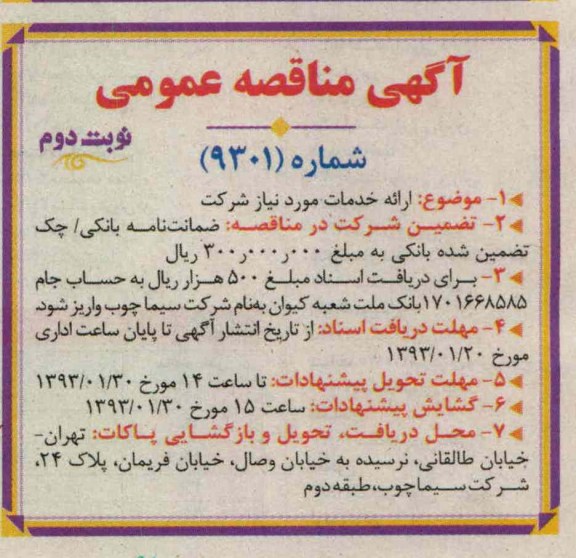 آگهی مناقصه عمومی
نوبت دوم
شماره (۹۳۰۱)
۱- موضوع: ارائه خدمات مورد نیاز شرکت
۲- تضمین شرکت در مناقصه: ضمانت‌نامه بانکی/ چک
تضمین شده بانکی به مبلغ ۳۰۰٫۰۰۰٫۰۰۰ ریال
۳- برای دریافت اسناد مبلغ ۵۰۰ هزار ریال به حساب جام
۱۷۰۱۶۶۸۵۸۵ بانک ملت شعبه کیوان به‌نام شرکت سیما چوب واریز شود.
۴- مهلت دریافت اسناد: از تاریخ انتشار آگهی تا پایان ساعت اداری
مورخ ۱۳۹۳/۰۱/۲۰
۵- مهلت تحویل پیشنهادات: تا ساعت ۱۴ مورخ ۱۳۹۳/۰۱/۳۰
۶- گشایش پیشنهادات: ساعت ۱۵ مورخ ۱۳۹۳/۰۱/۳۰
۷- محل دریافت، تحویل و بازگشایی پاکات: تهران-
خیابان طالقانی، نرسیده به خیابان وصال، خیابان فریمان، پلاک ۲۴،
شرکت سیماچوب، طبقه دوم